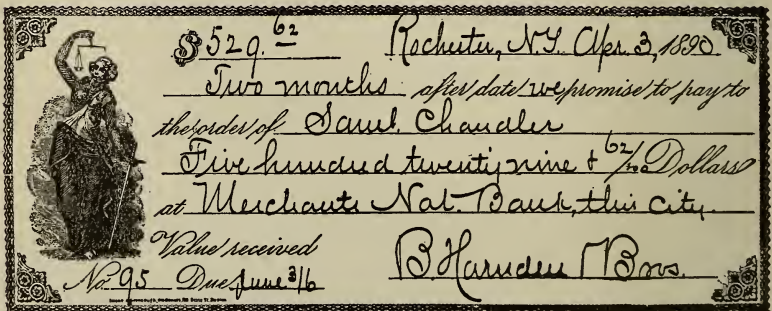 $529.62 Rochester, N.Y. Apr. 3, 1890
Two months after date we promise to pay to
the order of Saml. Chandler
Five hundred twenty nine & 62/100 Dollars
at Merchants Nat. Bank, this city.
Value received
B. Harnden Bros.
No. 95 Due June 3/6